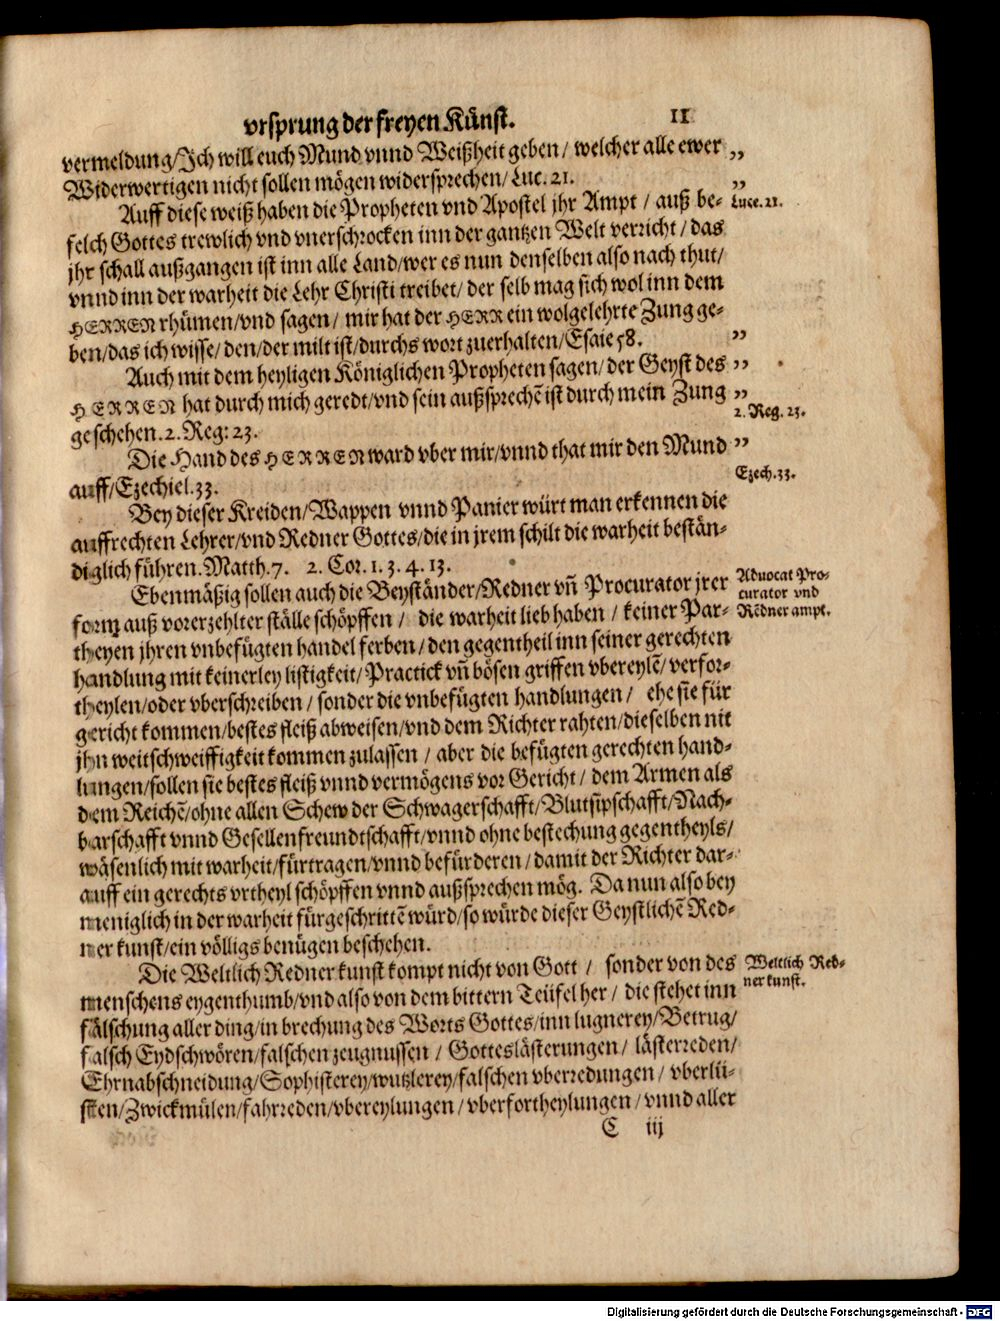 vrsprung der freyen Künst. 11
vermeldung/Ich will euch Mund vnnd Weißheit geben/ welcher alle ewer „
Widerwertigen nicht sollen mögen widersprechen/ Luc. 21. „
Luce. 21.
Auff diese weiß haben die Propheten vnd Apostel jhr Ampt / auß be-
felch Gottes trewlich vnd vnerschrocken inn der gantzen Welt verricht / das
jhr schall außgangen ist inn alle Land/wer es nun denselben also nach thut/
vnnd inn der warheit die Lehr Christi treibet/ der selb mag sich wol inn dem
HERREN rhümen/vnd sagen / mir hat der HERR ein wolgelehrte Zung ge-
ben/das ich wisse/ den/der milt ist/durchs wort zuerhalten/Esaie 58. „
Auch mit dem heyligen Königlichen Propheten sagen/ der Geyst des „
HERREN hat durch mich geredt/vnd sein außsprechẽ ist durch mein Zung „
2. Reg. 23.
geschehen. 2. Reg: 23.
Die Hand des HERREN ward vber mir/vnnd that mir den Mund „
Ezech. 33.
auff/Ezechiel. 33.
Bey dieser Kreiden/Wappen vnnd Panier würt man erkennen die
auffrechten Lehrer/vnd Redner Gottes/die in jrem schilt die warheit bestän-
diglich führen. Matth. 7. 2. Cor. 1. 3. 4. 13.
Advocat Pro-
curator vnd
Redner ampt.
Ebenmäßig sollen auch die Beyständer/Redner vñ Procurator jrer
form auß vorerzehlter ställe schöpffen / die warheit lieb haben / keiner Par-
theyen jhren vnbefügten handel ferben/ den gegentheil inn seiner gerechten
handlung mit keinerley listigkeit/Practick vñ bösen griffen vbereylẽ/ verfor-
theylen/oder vberschreiben / sonder die vnbefügten handlungen / ehe sie für
gericht kommen/bestes fleiß abweisen/vnd dem Richter rahten/dieselben nit
jhn weitschweiffigkeit kommen zulassen / aber die befügten gerechten hand-
lungen/sollen sie bestes fleiß vnnd vermögens vor Gericht / dem Armen als
dem Reichẽ/ohne allen Schew der Schwagerschafft/Blutsipschafft/Nach-
barschafft vnnd Gesellenfreundtschafft/vnnd ohne bestechung gegentheyls/
wäsenlich mit warheit/fürtragen/vnnd befürderen/ damit der Richter dar-
auff ein gerechts vrtheyl schöpffen vnnd außsprechen mög. Da nun also bey
meniglich in der warheit fürgeschrittẽ würd/so würde dieser Geystlichẽ Red-
ner kunst/ein völligs benügen beschehen.
Weltlich Red-
ner kunst.
Die Weltlich Redner kunst kompt nicht von Gott / sonder von des
menschens eygenthumb/vnd also von dem bittern Teüfel her / die stehet inn
fälschung aller ding/in brechung des Worts Gottes/inn lugnerey/Betrug/
falsch Eydschwören/falschen zeugnussen / Gotteslästerungen / lästerreden/
Ehrnabschneidung/Sophisterey/wutzlerey/falschen vberredungen / vberlii-
sten/Zwickmülen/fahrreden/vbereylungen / vberfortheylungen / vnnd aller
C iij
Digitalisierung gefördert durch die Deutsche Forschungsgemeinschaft - DFG